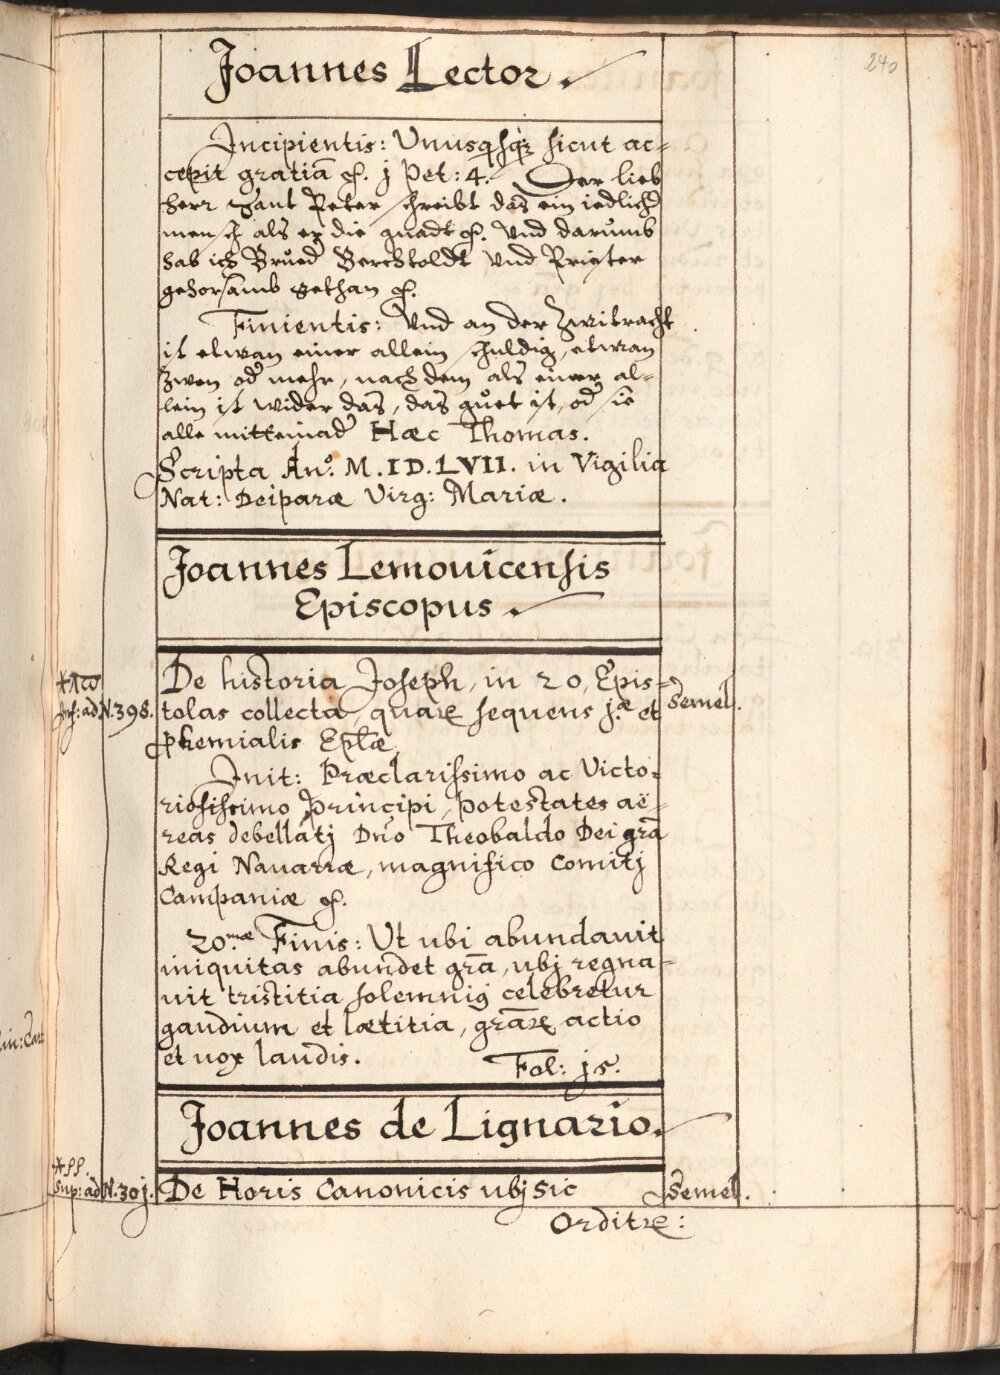 240
Joannes Lector.
Incipientis: Unusqsqz sicut ac-
cepit gratiã &. j Pet: 4. Der lieb
herr Sant Peter schreibt das ein iedlich
mensch als er die gnadt &. Und darumb
hab ich Brued Berchtoldt Und Priester
gehorsamb gethan &.
Finientis: Und an der Zwitracht
ist etwan einer allein schuldig, etwan
zwen od mehr, nach dem als einer al-
lein ist wider das, das guet ist, od sie
alle mitteinad Hæc Thomas.
Scripta Anº. M.ID.LVII. in Vigilia
Nat: Deiparæ Virg: Mariæ.
Joannes Lemouicensis
Episcopus.
De historia Joseph, in 20, Epis-
tolas collecta, quare sequens j.æ et
phemialis Eplæ
Init: Præclarissimo ac Victo-
riosissimo Principi, potestates aë-
reas debellatj Dno Theobaldo Dei grã
Regi Nauarræ, magnifico Comitj
Campaniæ &.
20.mæ Finis: Ut ubi abundauit
iniquitas abundet grã, ubj regna-
uit tristitia solemnig celebretur
gaudium et lætitia, grãr actio
et uox laudis. Fol: js.
Inf: ad N.398.
Semel.
Joannes de Lignario.
Sup: ad N.30j.
De Horis Canonicis ubj sic
Semel.
Orditr: